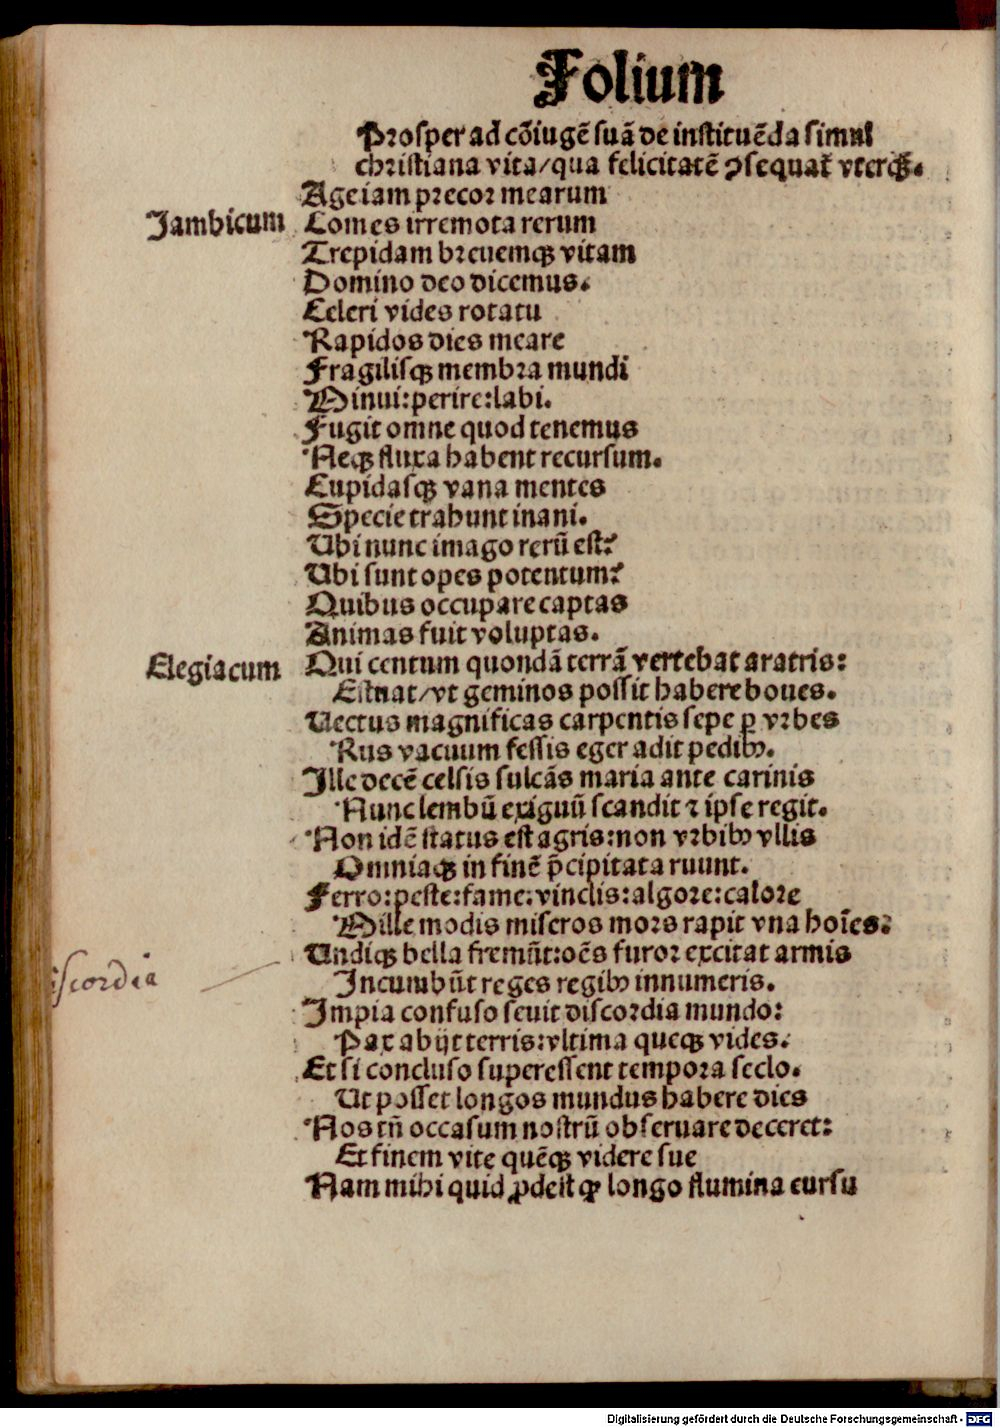 Folium
Prosper ad cōiugē suā de instituēda simul
christiana vita/qua felicitatē ꝯsequat᷑ vterqꝫ.
Age iam precor mearum
Iambicum
Comes irremota rerum
Trepidam breuemqꝫ vitam
Domino deo dicemus.
Celeri vides rotatu
Rapidos dies meare
Fragilisqꝫ membra mundi
Minui:perire:labi.
Fugit omne quod tenemus
Neqꝫ fluxa habent recursum.
Cupidasqꝫ vana mentes
Specie trahunt inani.
Ubi nunc imago rerū est?
Ubi sunt opes potentum?
Quibus occupare captas
Animas fuit voluptas.
Elegiacum
Qui centum quondā terrā vertebat aratris:
Estuat/vt geminos possit habere boues.
Uectus magnificas carpentis sepe ꝑ vrbes
Rus vacuum fessis eger adit pedibꝰ.
Ille decē celsis sulcās maria ante carinis
Nunc lembū exiguū scandit ⁊ ipse regit.
Non idē status est agris:non vrbibꝰ vllis
Omniaqꝫ in finē p̄cipitata ruunt.
Ferro:peste:fame:vinclis:algore:calore
Mille modis miseros mors rapit vna hoīes:
Undiqꝫ bella fremūt:oēs furor excitat armis
iscordia
Incumbūt reges regibꝰ innumeris.
Impia confuso seuit discordia mundo:
Pax abijt terris:vltima queqꝫ vides.
Et si concluso superessent tempora seclo.
Ut posset longos mundus habere dies
Nos tn̄ occasum nostrū obseruare deceret:
Et finem vite quēqꝫ videre sue
Nam mihi quid ꝓdest qꝙ longo flumina cursu
Digitalisierung gefördert durch die Deutsche Forschungsgemeinschaft - DFG